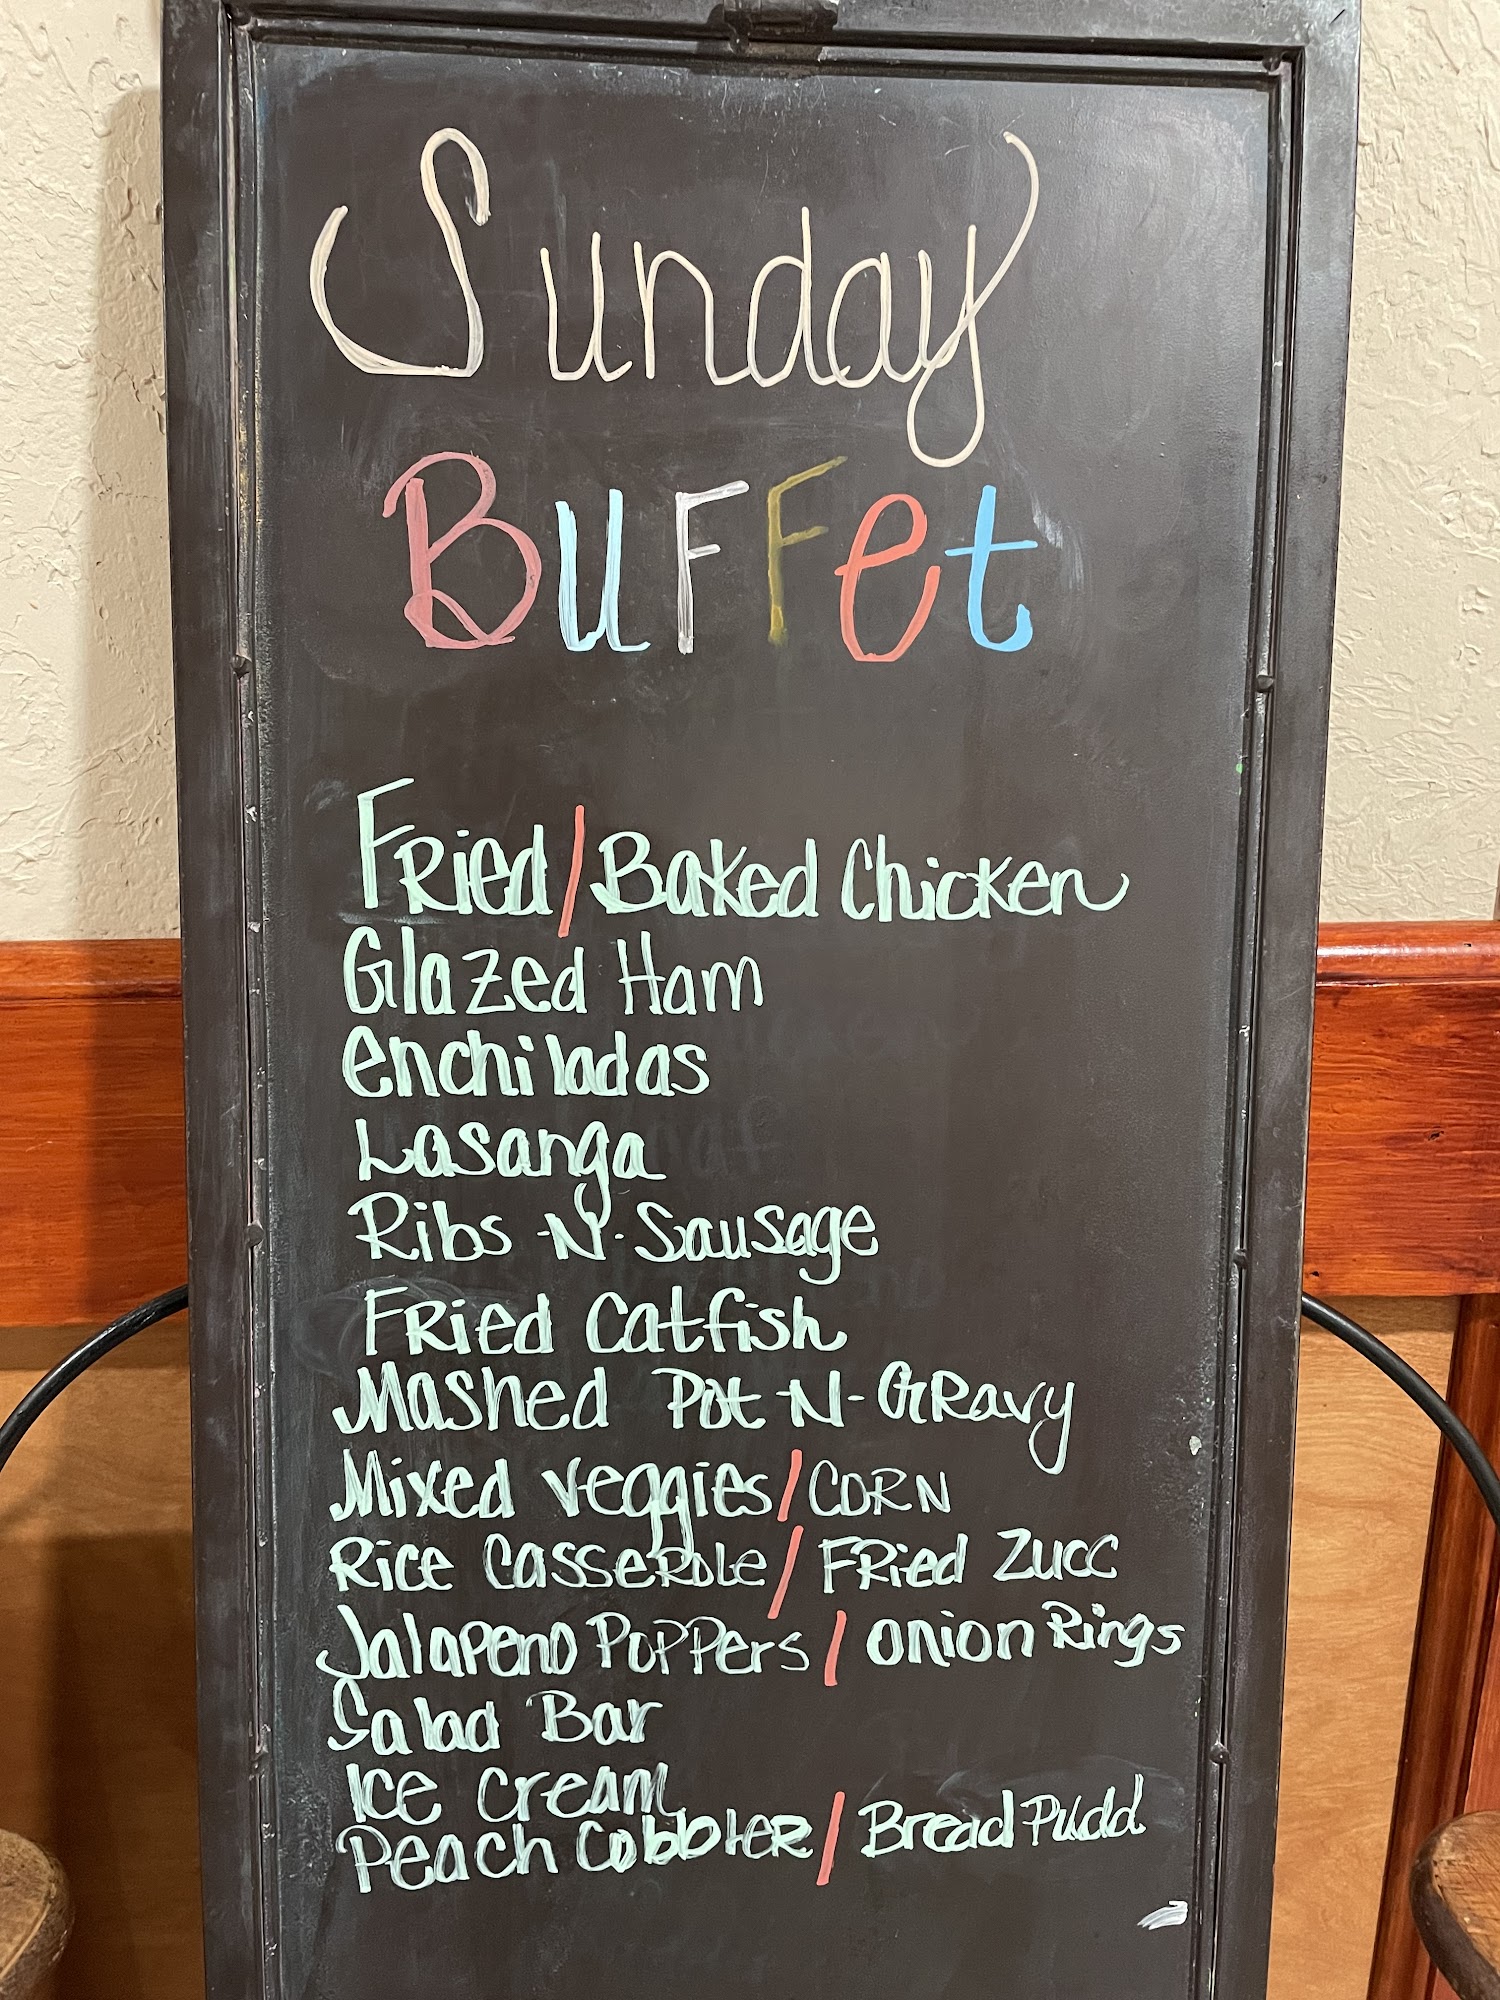 Sunday
Buffet
Fried/Baked Chicken
Glazed Ham
enchiladas
Lasanga
Ribs -N- Sausage
Fried Catfish
Mashed Pot -N- Gravy
Mixed veggies/CORN
Rice Casserole/Fried Zucc
Jalapeno Poppers/onion Rings
Salad Bar
Ice Cream
Peach Cobbler/Bread Pudd